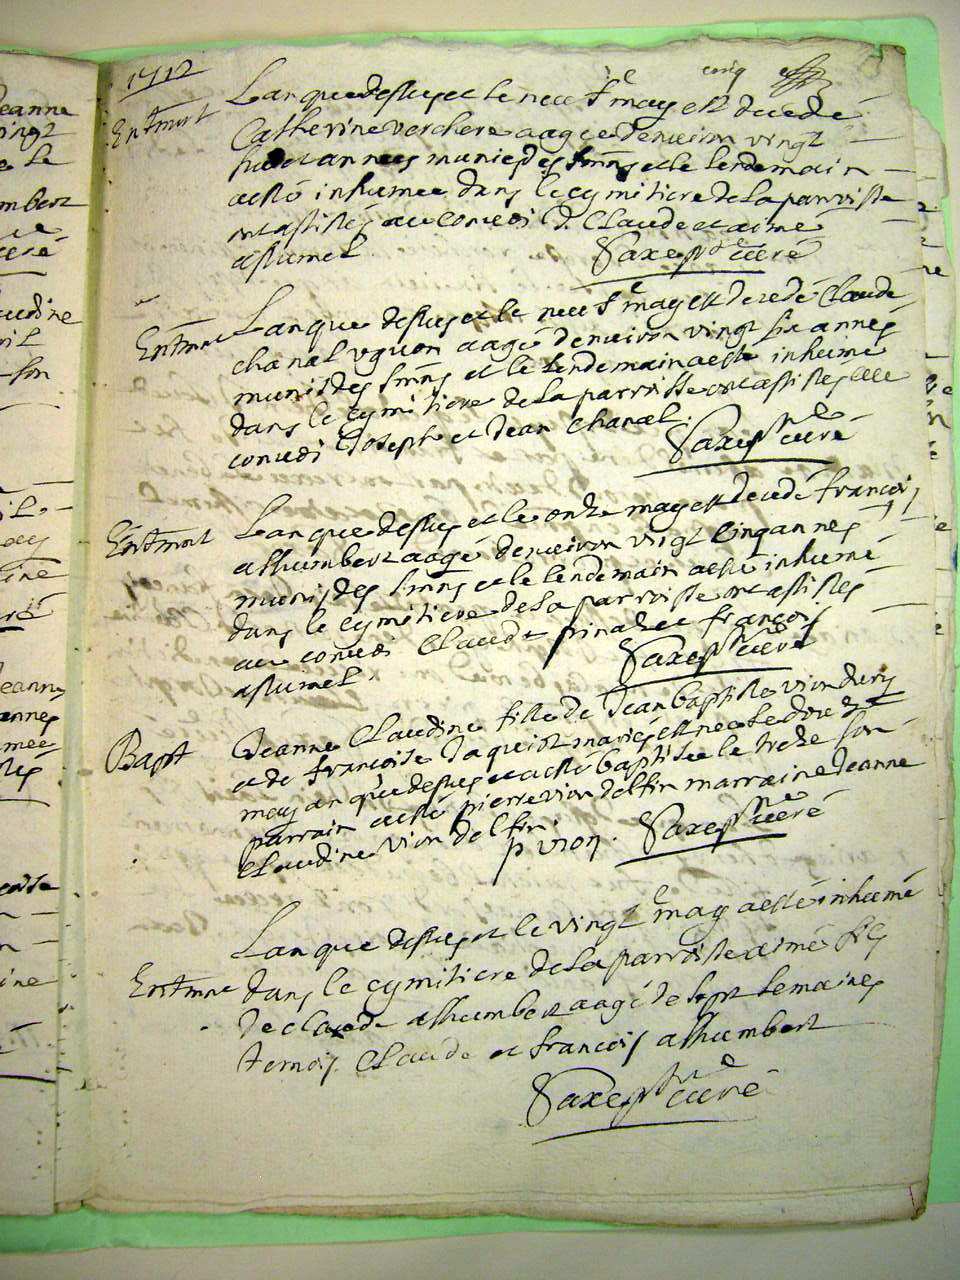 1712
cinq
Lan que dessus et le neuf may est decedé
Enterment
Catherine verchere aagée denviron vingt
huict années munie des smns et le lendemain
a esté inhumée dans le cymitiere de la parroisse
ont assistés au convoi Claude et aimé
assumel Saxe ptre curé
Enterment
Lan que dessus et le neuf may est decedé Claude
chanal vguon aagé denviron vingt six années
munis des smns et le lendemain a esté inhumé
dans le cymitiere de la parroisse ont assistés au
convoi Joseph et Jean Chanal. Saxe ptre curé
Enterment
Lan que dessus et le onze may est decedé francois
alhumbert aagé denviron vingt cinq années
munis des smns et le lendemain a esté inhumé
dans le cymitiere de la parroisse ont assistés
au convoi Claude et francois
assumel Saxe ptre curé
Bapt
Jeanne Claudine fille de Jean baptiste vion
et de francoise Jaquiot mariés est née le douze
may an que dessus et a esté baptisée le treize son
parrain a esté pierre vion delfin marraine Jeanne
Claudine vion delfin.
p vion. Saxe ptre curé
Lan que dessus et le vingt may a esté inhumé
Enterment
dans le cymitiere de la parroisse aimé fils
de claude alhumbert aagé de sept semaines
temois Claude et francois alhumbert
Saxe ptre curé